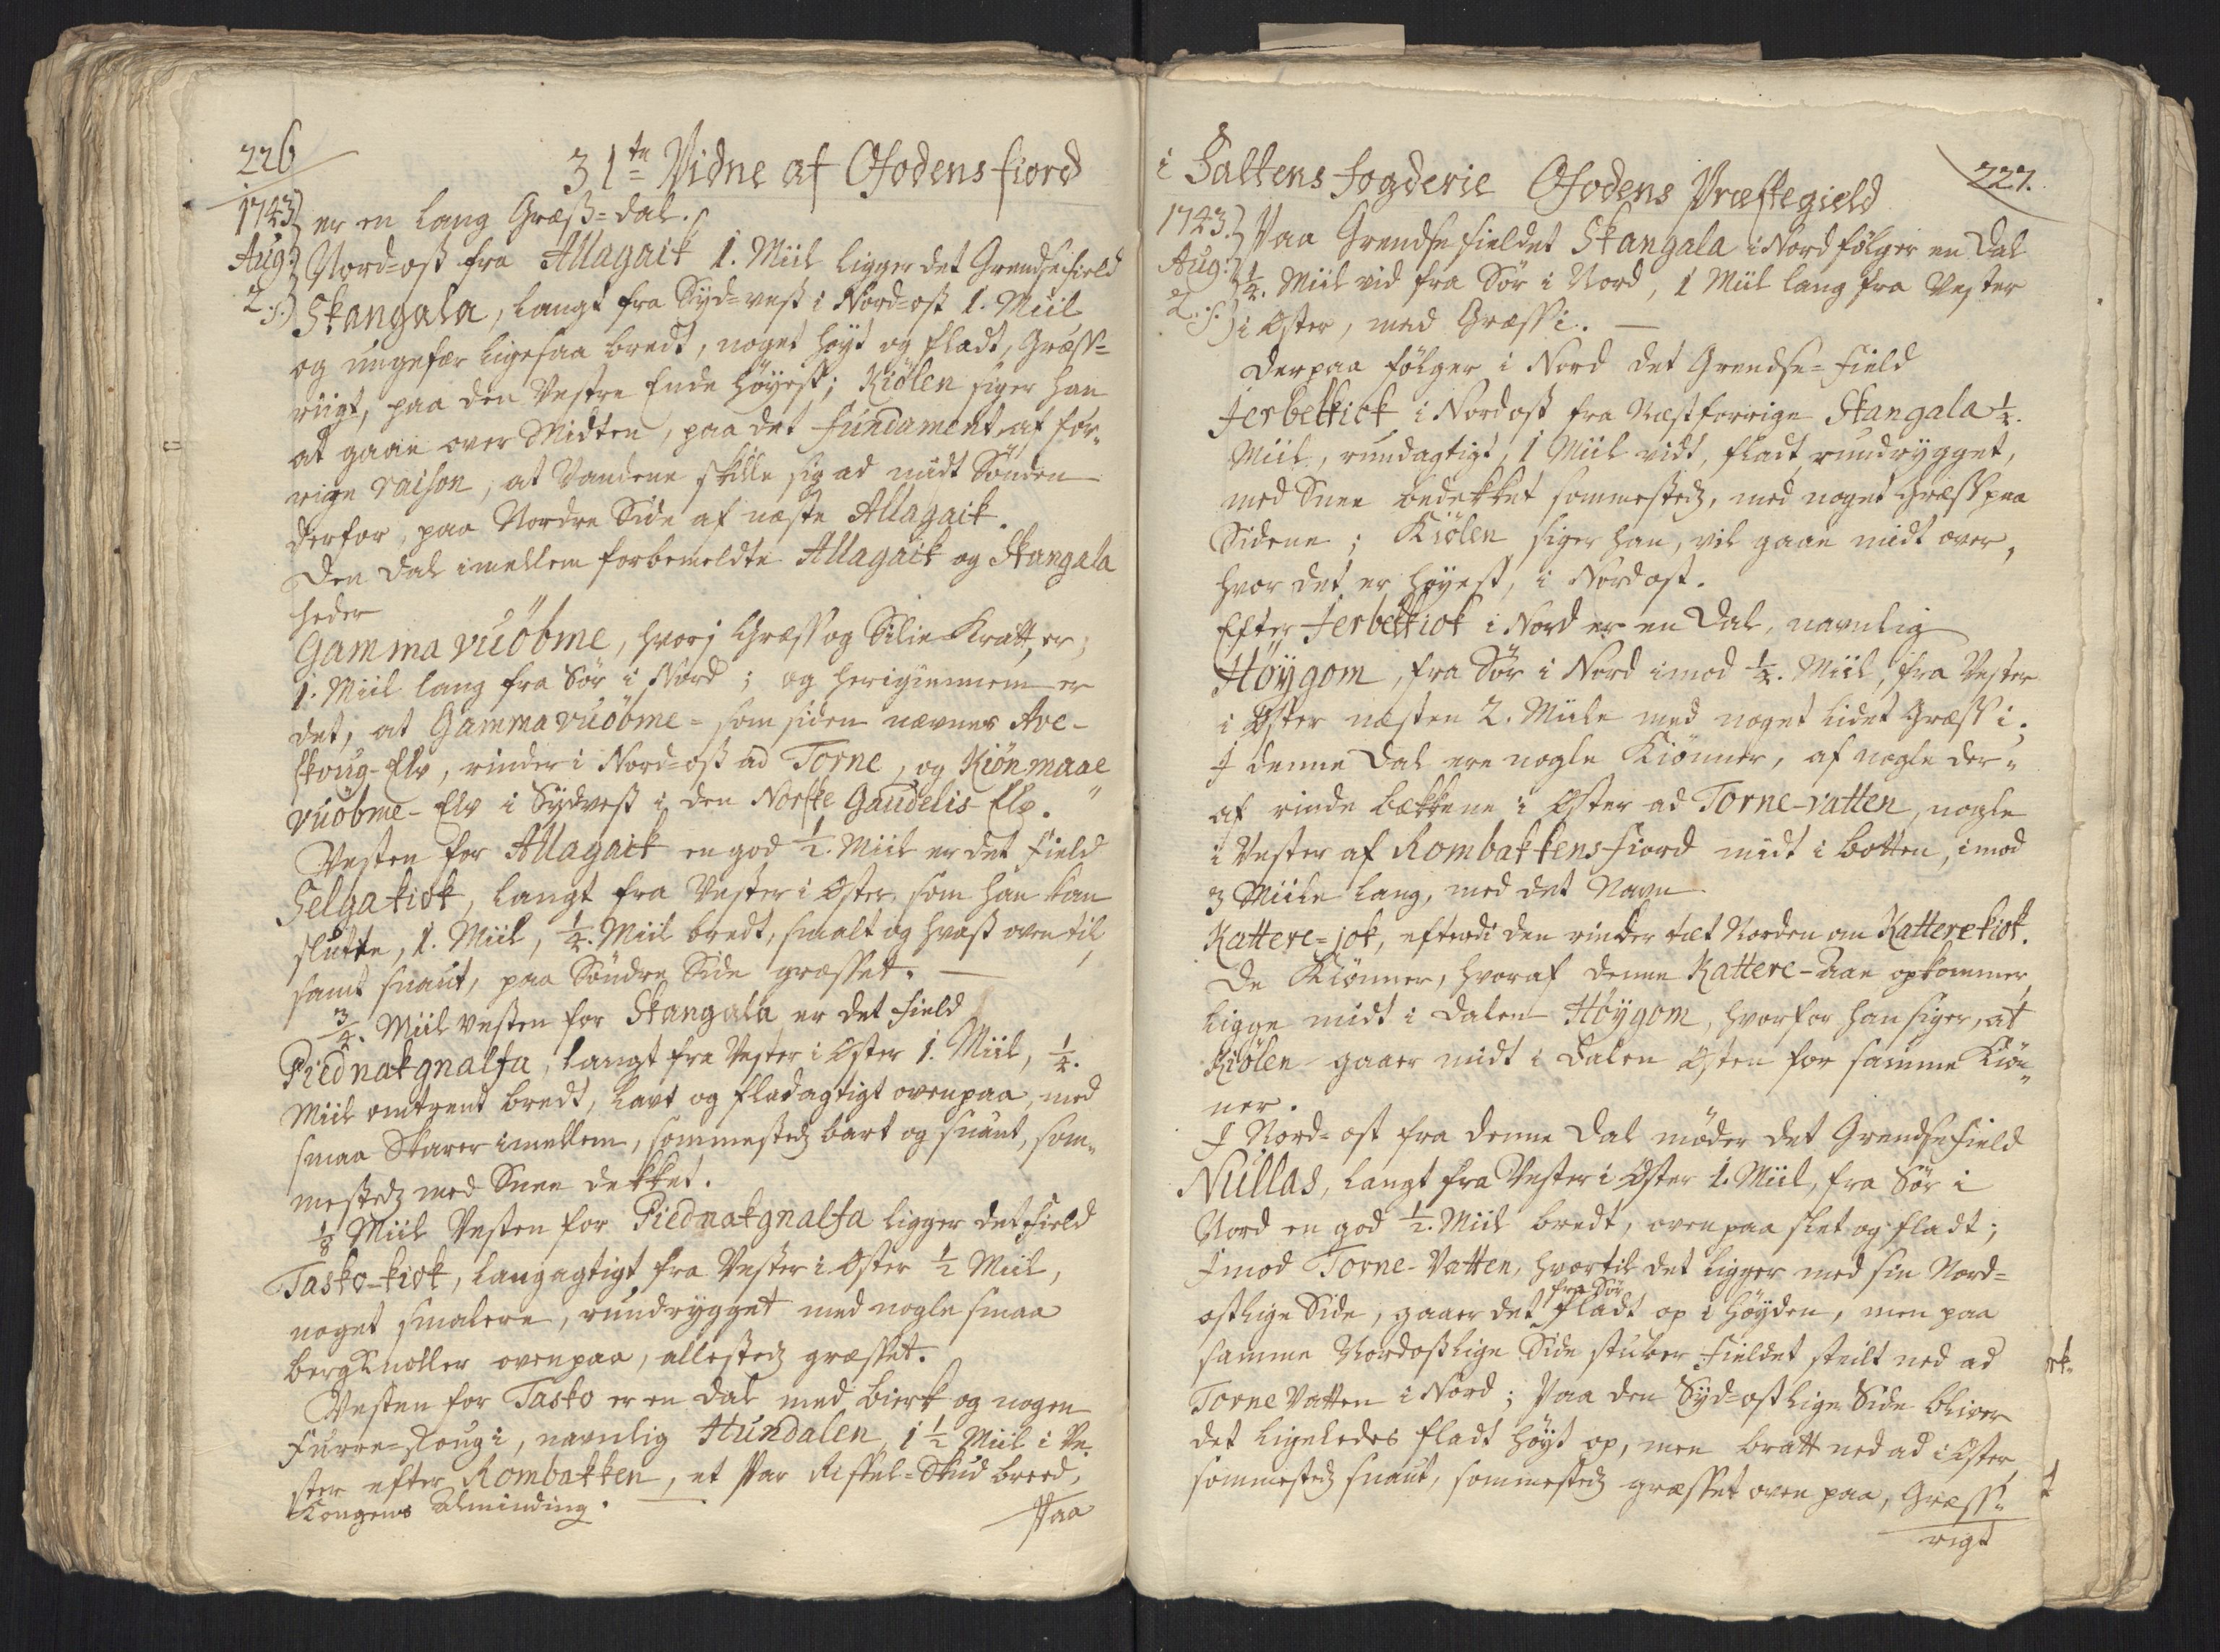 226
31te Vidne af Ofodens fiord
1743 er en lang Græß=dal.
Aug: Nord-ost fra Allagaik 1. Miil ligger det Grendsefield
2. s: Skangala, langt fra Syd-vest i Nord-ost 1. Miil
og ungefær ligesaa bredt, noget høyt og fladt, Græss=
riigt, paa den Vestre Ende høyest; Kiølen siger han
at gaae over Midten, paa det fundament, af for„
rige raison, at Vandene skille sig ad midt Sønden
derfor, paa Nordre Side af næste Allagaik.
Den Dal imellem forbemeldte Allagaik og Skangala
heder
Gamma vuöbme, hvorj Græss og Silie Kratt, er;
1. Miil lang fra Sør i Nord; og herigiennem er
det, at Gamma vuöbme= som siden nævnes Ave-
skoug-Elv, rinder i Nord-ost ad Torne, og Kiönmaae
vuobme-Elv i Sydvest i den Norske Gaudelis-Elv."
Vesten for Allagaik en god 1/2. Miil er det Field
Selgakiok, langt fra Vester i Øster, som han kan
slutte, 1. Miil, 1/4. Miil bredt, smalt og hvast oventil,
samt snaut, paa Søndre Side græsset. —
3/4. Miil Vesten for Skangala er det Field
Piednakgnalfa, langt fra Vester i Øster 1. Miil, 1/4.
Miil omtrent bredt, lavt og fladagtigt ovenpaa, med
smaa Skarer imellem, sommestedz bart og snaut, som„
mestedz med Snee dekket.
1/8 Miil Vesten for Piednakgnalfa ligger det Field
Tasko-kiok, langagtigt fra Vester i Øster 1/2 Miil,
noget smalere, rundrygget med nogle smaa
bergKnoller ovenpaa, allestedz græsset.
Vesten for Tasko er en Dal med Birk og nogen
Furre=Skoug i, navnlig Hundalen 1 1/2 Miil i Ve„
ster efter Rombakken, et Par Riffel=Skud breed,
Kongens Alminding.
Paa
i Saltens Fogderie Ofodens Præstegield
227.
1743. Paa Grendsefieldet Skangala i Nord følger en Dal
Aug: 1/4. Miil vid fra Sør i Nord, 1 Miil lang fra Vester
2. s: i Øster, med Græss i. —
Derpaa følger i Nord det Grendse=Field
Jerbekkiok i Nordost fra Næstforrige Skangala 1/4.
Miil, rundagtigt, 1 Miil vidt, fladt rundrygget,
med Snee bedekket sommestedz, med noget Græss paa
Sidene; Kiölen siger han, vil gaae midt over,
hvor det er høyest, i Nordost.
Efter Jerbekkiok i Nord er en Dal, navnlig
Höÿgom, fra Sør i Nord imod 1/4. Miil, fra Vester
i Øster næsten 2. Miile med noget lidet Græss i.
I denne Dal ere nogle Kiønner, af nogle der„
af rinde bækkene i Øster ad Torne-vatten, nogle
i Vester af Rombakkens-Fiord midt i botten, imod
3 Miile lang, med det Navn
Kattere=jok, efterdi den rinder tæt Norden om Katterekiok.
De Kiønner, hvoraf denne Kattere-Aae opkommer,
ligge midt i Dalen Höÿgom, hvorfor han siger, at
Kiølen gaaer midt i Dalen Østen for samme Kiön„
ner.
I Nord-ost fra denne Dal møder det Grendsefield
Nullas, langt fra Vester i Øster 1. Miil, fra Sør i
Nord en god 1/2. Miil bredt, ovenpaa slet og fladt;
Imod Torne-Vatten, hvortil det ligger med sin Nord=
ostlige Side, gaaer det fra Sør fladt op i Høyden, men paa
samme Nordostlige Side stuber Fieldet steilt ned ad
Torne Vatten i Nord; Paa den Syd-ostlige Side bliver
det ligeledes fladt høyt op, men bratt ned ad i Øster,
sommestedz snaut, sommestedz græsset oven paa, Græss„
rigt